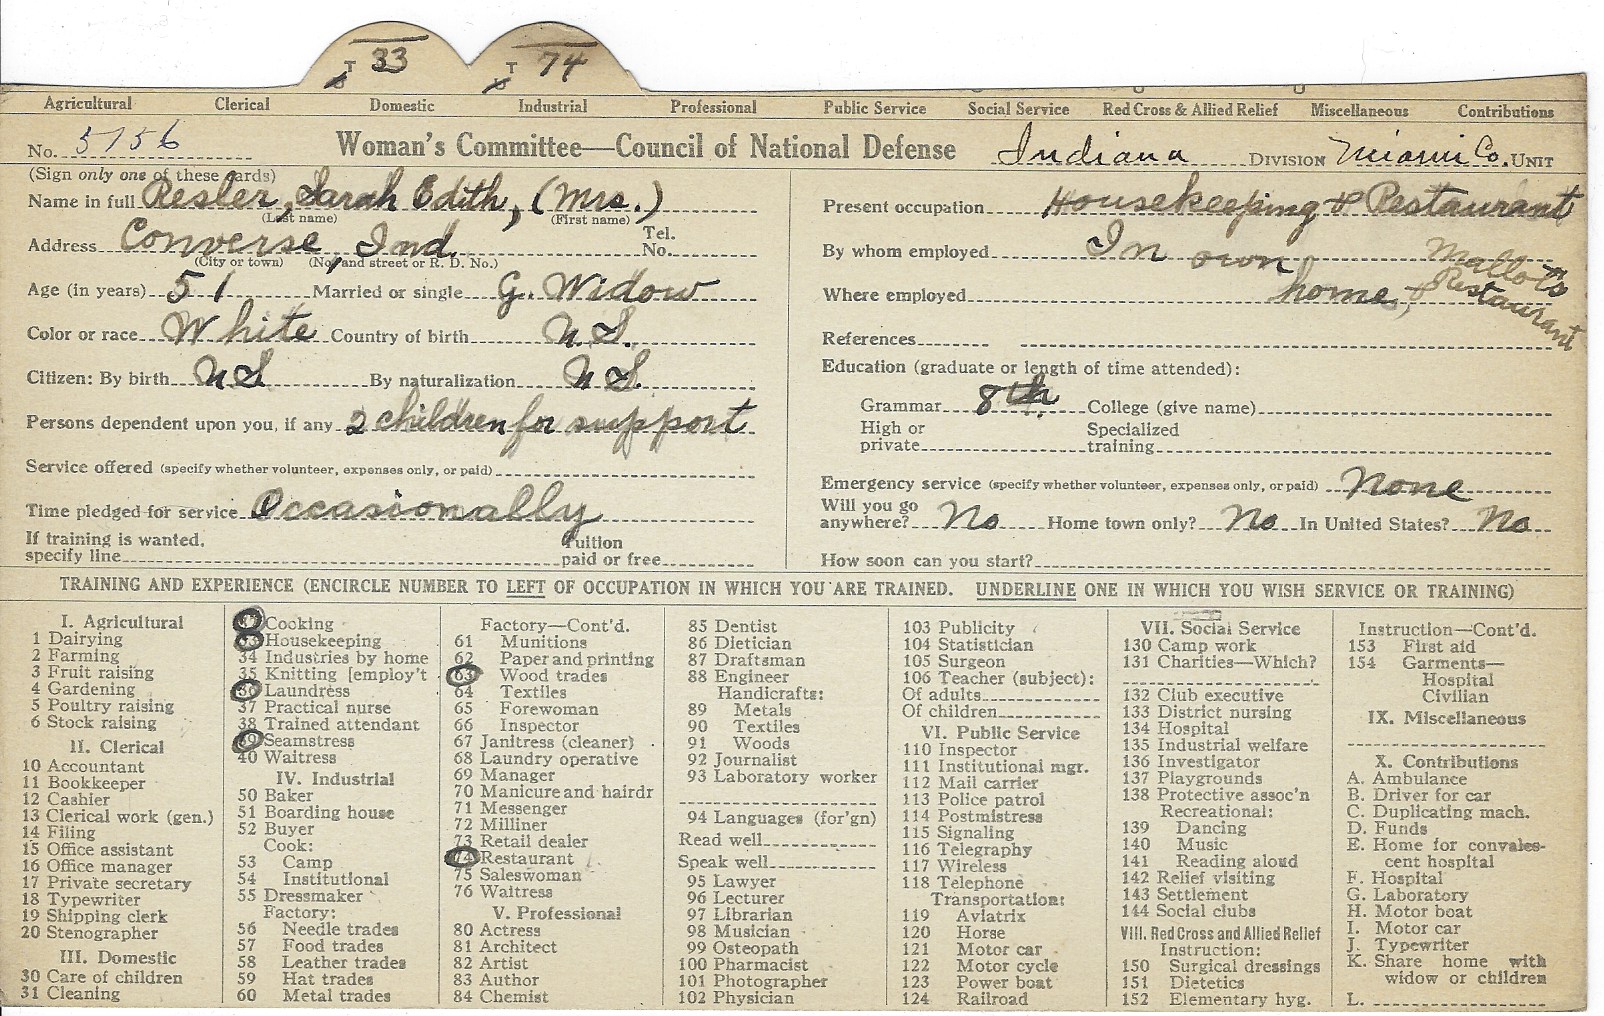 T 33 T 74
Agricultural Clerical Domestic Industrial Professional Public Service Social Service Red Cross & Allied Relief Miscellaneous Contributions
No. 5156 Woman's Committee—Council of National Defense Indiana DIVISION Miami Co. UNIT
(Sign only one of these cards)
Name in full Resler, Sarah Edith, (Mrs.)
(Last name) (First name)
Address Converse, Ind. Tel. No.
(City or town) (No. and street or R. D. No.)
Age (in years) 51 Married or single G. Widow
Color or race White Country of birth U.S.
Citizen: By birth US By naturalization U.S.
Persons dependent upon you, if any 2 children for support
Service offered (specify whether volunteer, expenses only, or paid)
Time pledged for service Occasionally
If training is wanted, specify line Tuition paid or free
Present occupation Housekeeping & Restaurant
By whom employed In own
Where employed home, & Mallots Restaurant
References
Education (graduate or length of time attended):
Grammar 8th. College (give name)
High or private Specialized training
Emergency service (specify whether volunteer, expenses only, or paid) None
Will you go anywhere? No Home town only? No In United States? No
How soon can you start?
TRAINING AND EXPERIENCE (ENCIRCLE NUMBER TO LEFT OF OCCUPATION IN WHICH YOU ARE TRAINED. UNDERLINE ONE IN WHICH YOU WISH SERVICE OR TRAINING)
I. Agricultural
1 Dairying
2 Farming
3 Fruit raising
4 Gardening
5 Poultry raising
6 Stock raising
II. Clerical
10 Accountant
11 Bookkeeper
12 Cashier
13 Clerical work (gen.)
14 Filing
15 Office assistant
16 Office manager
17 Private secretary
18 Typewriter
19 Shipping clerk
20 Stenographer
III. Domestic
30 Care of children
31 Cleaning
Cooking
33 Housekeeping
34 Industries by home
35 Knitting [employ't
36 Laundress
37 Practical nurse
38 Trained attendant
39 Seamstress
40 Waitress
IV. Industrial
50 Baker
51 Boarding house
52 Buyer
Cook:
53 Camp
54 Institutional
55 Dressmaker
Factory:
56 Needle trades
57 Food trades
58 Leather trades
59 Hat trades
60 Metal trades
Factory—Cont'd.
61 Munitions
62 Paper and printing
63 Wood trades
64 Textiles
65 Forewoman
66 Inspector
67 Janitress (cleaner)
68 Laundry operative
69 Manager
70 Manicure and hairdr
71 Messenger
72 Milliner
73 Retail dealer
74 Restaurant
75 Saleswoman
76 Waitress
V. Professional
80 Actress
81 Architect
82 Artist
83 Author
84 Chemist
85 Dentist
86 Dietician
87 Draftsman
88 Engineer
Handicrafts:
89 Metals
90 Textiles
91 Woods
92 Journalist
93 Laboratory worker
94 Languages (for'gn)
Read well
Speak well
95 Lawyer
96 Lecturer
97 Librarian
98 Musician
99 Osteopath
100 Pharmacist
101 Photographer
102 Physician
103 Publicity
104 Statistician
105 Surgeon
106 Teacher (subject):
Of adults
Of children
VI. Public Service
110 Inspector
111 Institutional mgr.
112 Mail carrier
113 Police patrol
114 Postmistress
115 Signaling
116 Telegraphy
117 Wireless
118 Telephone
Transportation:
119 Aviatrix
120 Horse
121 Motor car
122 Motor cycle
123 Power boat
124 Railroad
VII. Social Service
130 Camp work
131 Charities—Which?
132 Club executive
133 District nursing
134 Hospital
135 Industrial welfare
136 Investigator
137 Playgrounds
138 Protective assoc'n
Recreational:
139 Dancing
140 Music
141 Reading aloud
142 Relief visiting
143 Settlement
144 Social clubs
VIII. Red Cross and Allied Relief
Instruction:
150 Surgical dressings
151 Dietetics
152 Elementary hyg.
Instruction—Cont'd.
153 First aid
154 Garments—
Hospital
Civilian
IX. Miscellaneous
X. Contributions
A. Ambulance
B. Driver for car
C. Duplicating mach.
D. Funds
E. Home for convales-
cent hospital
F. Hospital
G. Laboratory
H. Motor boat
I. Motor car
J. Typewriter
K. Share home with
widow or children
L.